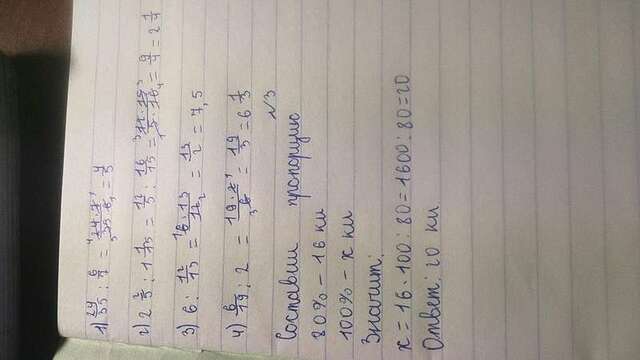 1) 24/35 : 6/7 = 24·7/35·6 = 4/5
2) 2 2/5 : 1 1/15 = 12/5 : 16/15 = 12·15/5·16 = 9/4 = 2 1/4
3) 6 : 12/13 = 6·13/12 = 13/2 = 7,5
4) 6/19 : 2 = 19·2/6 = 19/3 = 6 1/3
№3
Составим пропорцию
80% – 16 км
100% – x км
Значит:
x = 16·100:80=1600:80=20
Ответ: 20 км